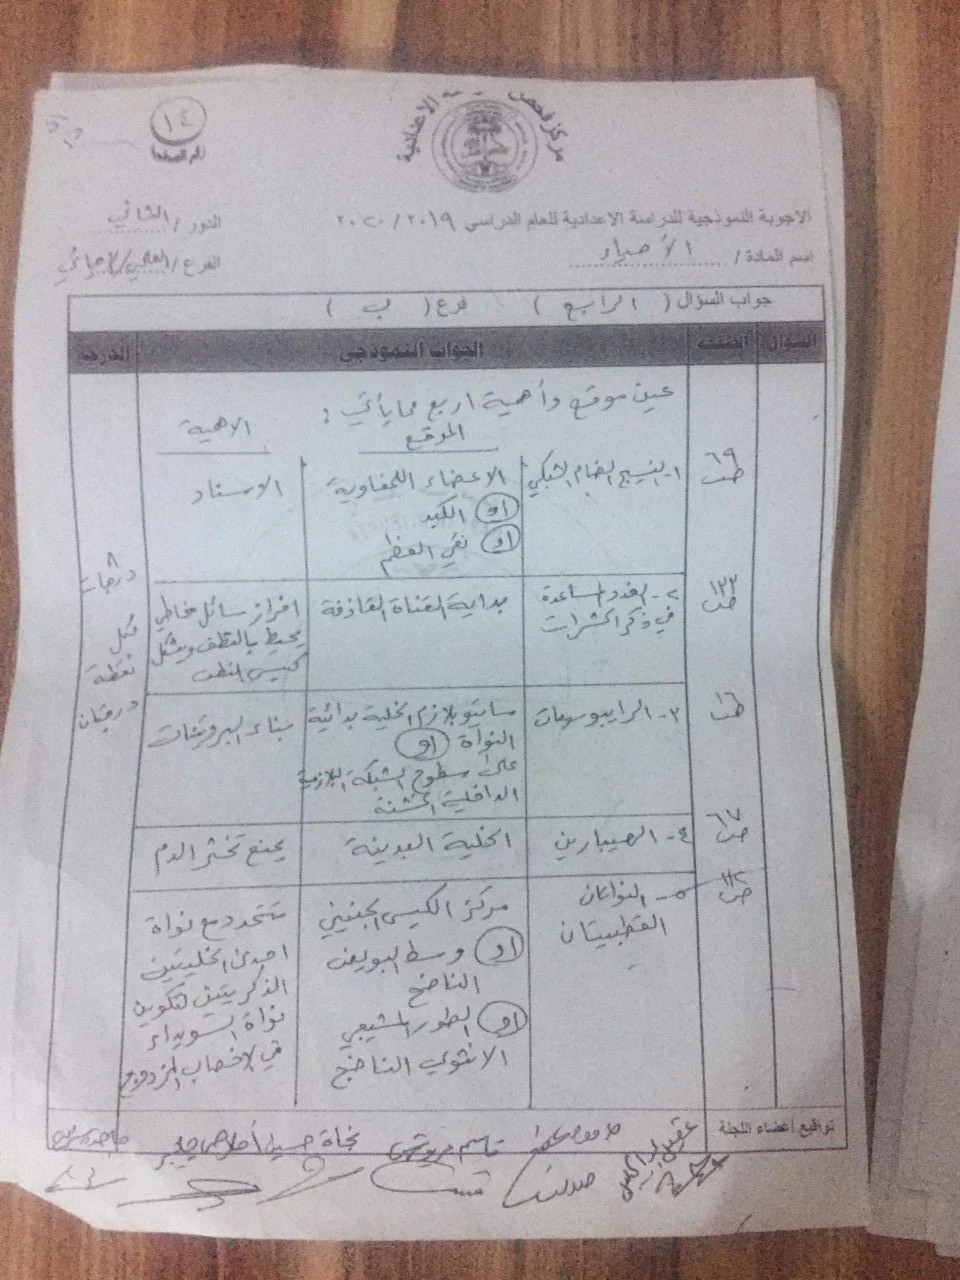 مركز فحص الاعدادية
١٤
رقم الصفحة
الاجوبة النموذجية للدراسة الاعدادية للعام الدراسي ٢٠١٩/ ٢٠٢٠
الدور / الثاني
اسم المادة / الأحياء
الفرع / العلمي/الاحيائي
جواب السؤال ( الرابع ) فرع ( ب )
السؤال الصفحة الجواب النموذجي الدرجة
عين موقع وأهمية اربع مما يأتي :
الموقع الاهمية
ص ٦٩
١- النسيج الضام الشبكي
الاعضاء اللمفاوية
او الكبد
او نقي العظم
الاسناد
ص ١٣٣
٢- الغدد المساعدة
في ذكر الحشرات
بداية القناة القاذفة
افراز سائل مخاطي
يحيط بالنطف ويشكل
كيس النطف
ص ١٦
٣- الرايبوسومات
سايتوبلازم الخلية بدائية
النواة او
على سطوح الشبكة البلازمية
الداخلية الخشنة
بناء البروتينات
ص ٦٧
٤- الهيبارين
الخلية البدينة
يمنع تخثر الدم
ص
٥- النواتان
القطبيتان
مركز الكيس الجنيني
او وسط البويض
الناضج
او الطور المشيجي
الانثوي الناضج
تتحد مع نواة
احدى الخليتين
الذكريتين لتكوين
نواة السويداء
في الاخصاب المزدوج
لكل
نقطة
درجتان
تواقيع أعضاء اللجنة